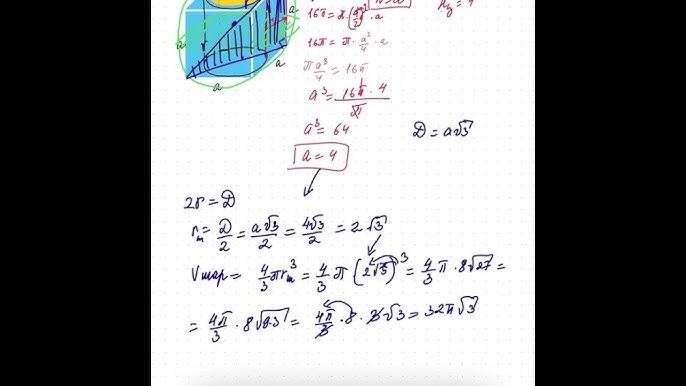 16π = π · (a/2)² · a
16π = π · a²/4 · a
πa³/4 = 16π
a³ = 16π · 4 / π
a³ = 64
D = a√3
a = 4
2r = D
r_ш = D/2 = a√3/2 = 4√3/2 = 2√3
V шар = 4/3 πr_ш³ = 4/3 π (2√3)³ = 4/3 π · 8√27 =
= 4π/3 · 8√9·3 = 4π/3 · 8 · 3√3 = 32π√3
a
a
a